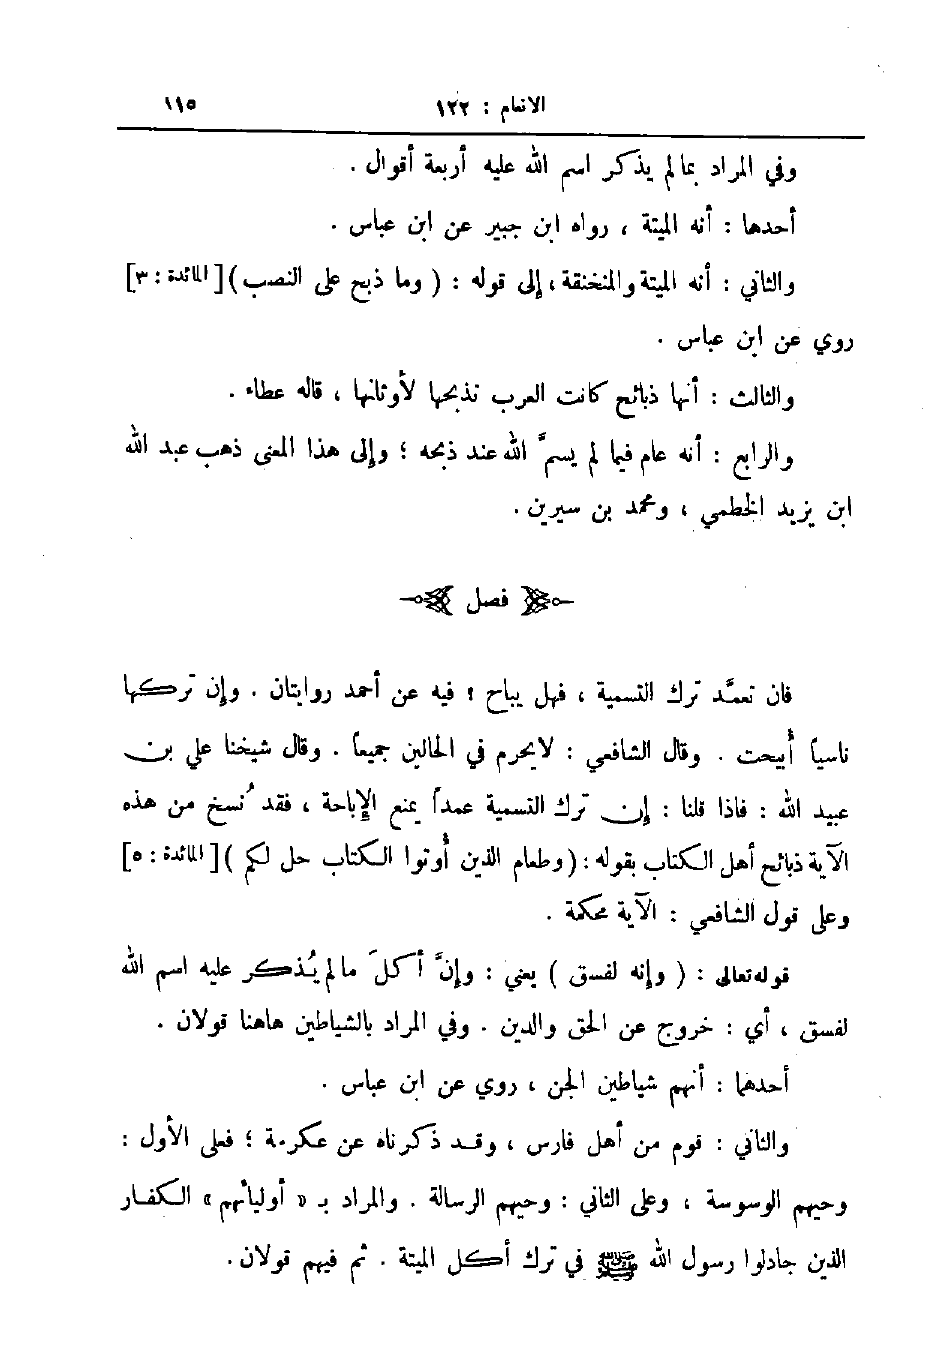 الانعام : ١٢٢ ١١٥
وفي المراد بمالم يذكر اسم الله عليه أربعة أقوال .
أحدها : أنه الميتة ، رواه ابن جبير عن ابن عباس .
والثاني : أنه الميتة والمنخنقة ، إلى قوله : ( وما ذبح على النصب ) [ المائدة : ٣ ]
روي عن ابن عباس .
والثالث : أنها ذبائح كانت العرب تذبحها لأوثانها ، قاله عطاء .
والرابع : أنه عام فيما لم يسمَّ الله عند ذبحه ؛ وإلى هذا المعنى ذهب عبد الله
ابن يزيد الخطمي ، ومحمد بن سيرين .
فصل
فان تعمَّد ترك التسمية ، فهل يباح ؟ فيه عن أحمد روايتان . وإن تركها
ناسياً أُبيحت . وقال الشافعي : لا يحرم في الحالين جميعاً . وقال شيخنا علي بن
عبيد الله : فاذا قلنا : إن ترك التسمية عمداً يمنع الإباحة ، فقد نُسخ من هذه
الآية ذبائح أهل الكتاب بقوله : ( وطعام الذين أُوتوا الكتاب حل لكم ) [ المائدة : ٥ ]
وعلى قول الشافعي : الآية محكمة .
قوله تعالى : ( وإنه لفسق ) يعني : وإنَّ أكلَ مالم يُذكر عليه اسم الله
لفسق ، أي : خروج عن الحق والدين . وفي المراد بالشياطين هاهنا قولان .
أحدهما : أنهم شياطين الجن ، روي عن ابن عباس .
والثاني : قوم من أهل فارس ، وقد ذكرناه عن عكرمة ؛ فعلى الأول :
وحيهم الوسوسة ، وعلى الثاني : وحيهم الرسالة . والمراد بـ « أوليائهم » الكفار
الذين جادلوا رسول الله ﷺ في ترك أكل الميتة . ثم فيهم قولان .